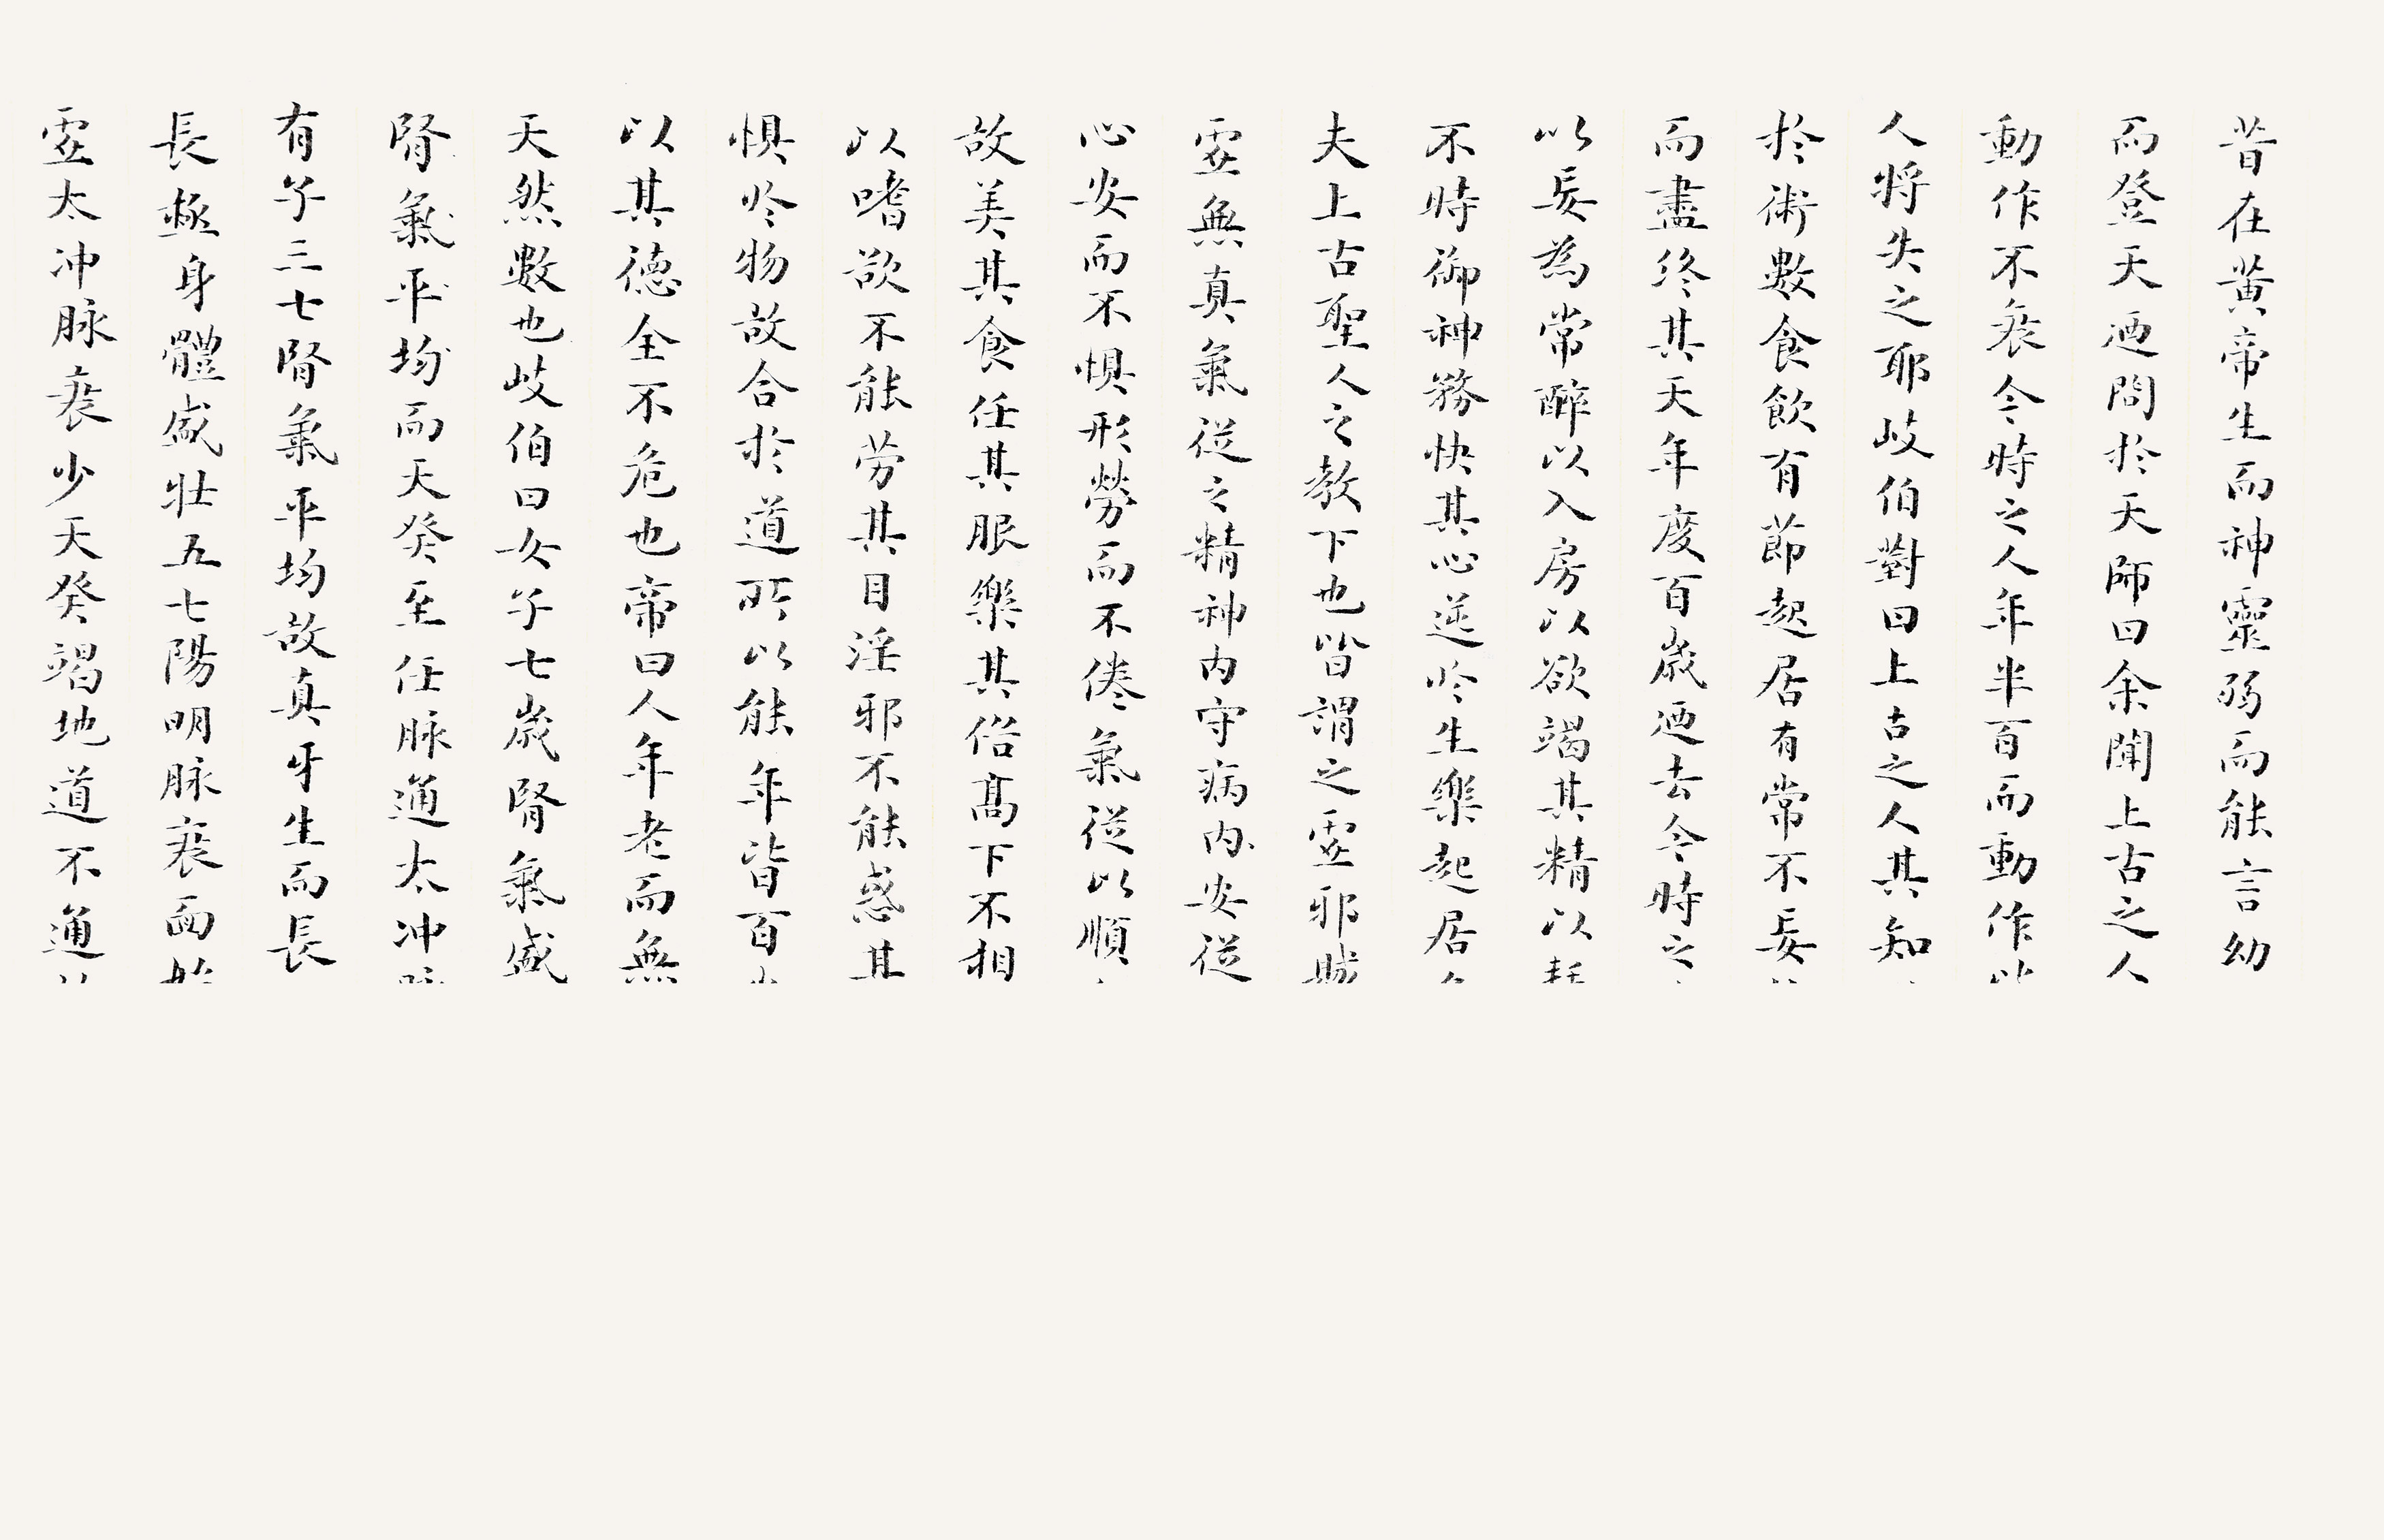 昔在黃帝生而神靈弱而能言幼
而登天迺問於天師曰余聞上古之人
動作不衰今時之人年半百而動作
人將失之耶岐伯對曰上古之人其知
於術數食飲有節起居有常不妄
而盡終其天年度百歲迺去今時之
以妄為常醉以入房以欲竭其精以
不時御神務快其心逆於生樂起居
夫上古聖人之教下也皆謂之虛邪
虛無真氣從之精神內守病內安從
心安而不懼形勞而不倦氣從以順
故美其食任其服樂其俗高下不相
以嗜欲不能劳其目淫邪不能惑其
懼於物故合於道所以能年皆百
以其德全不危也帝曰人年老而無
天然數也岐伯曰女子七歲腎氣盛
腎氣平均而天癸至任脉通太冲
有子三七腎氣平均故真牙生而長
長極身體盛壯五七陽明脉衰面
虛太冲脉衰少天癸竭地道不通